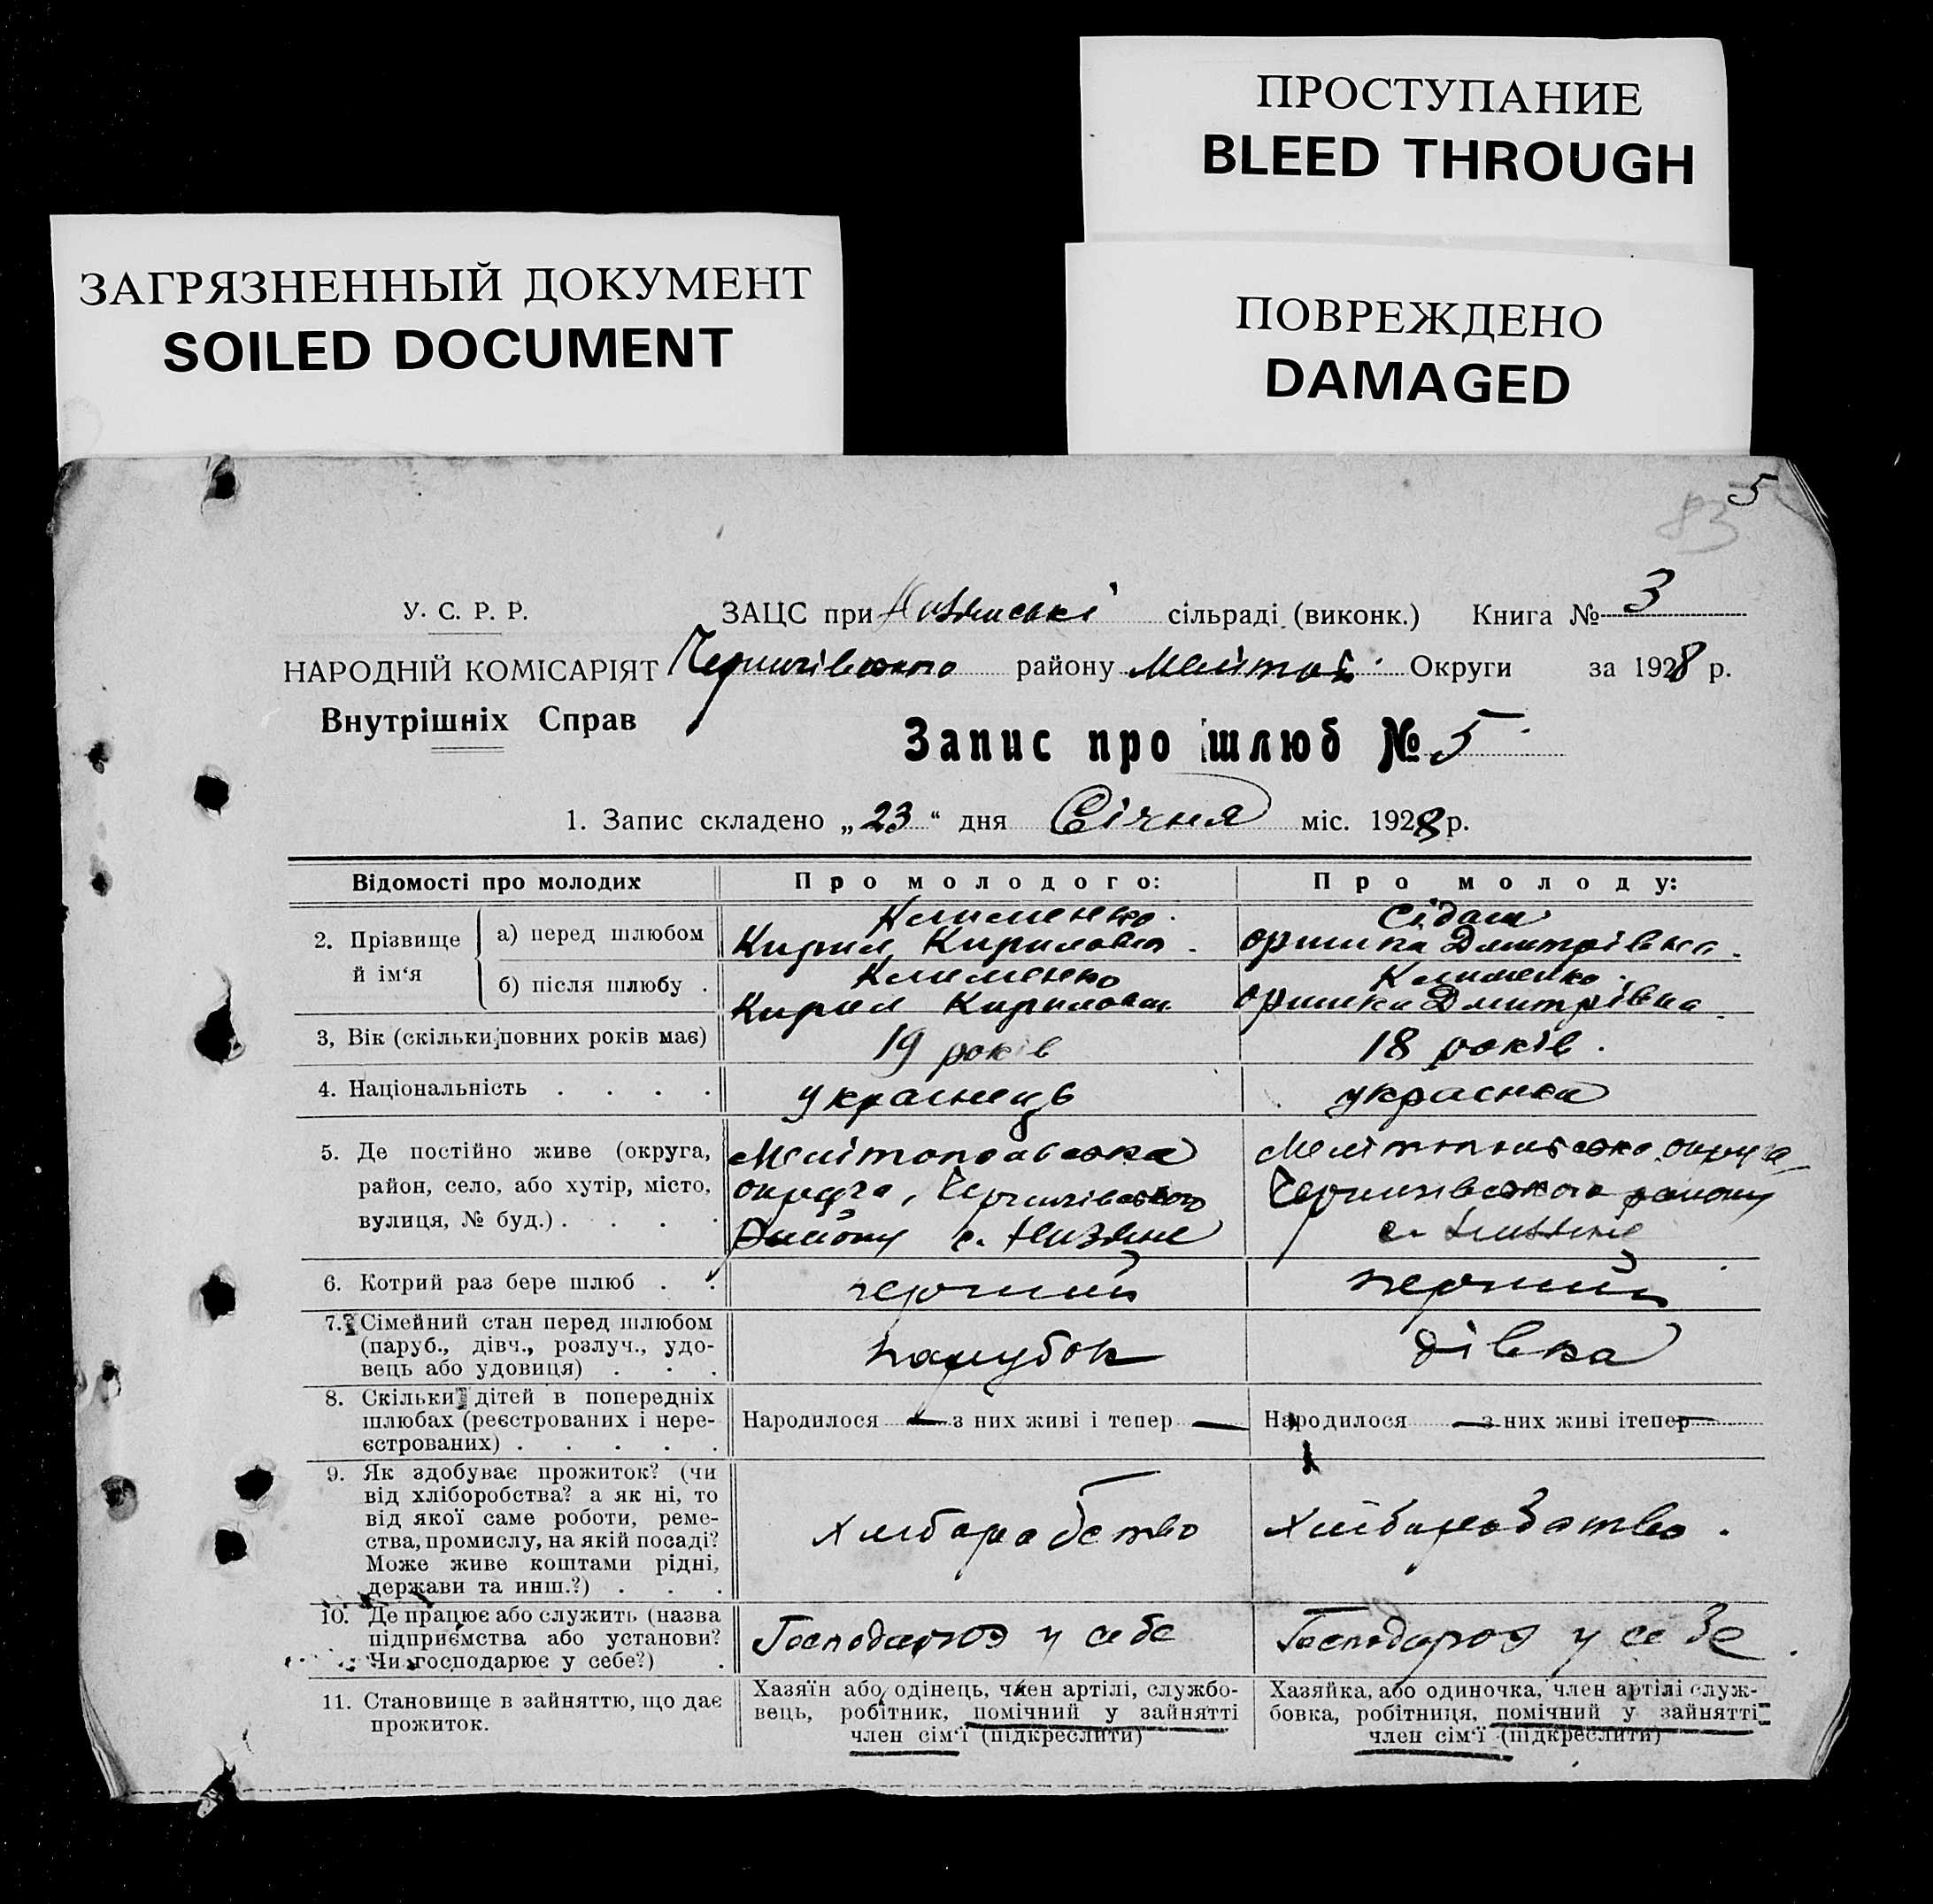 ПРОСТУПАНИЕ
BLEED THROUGH
ЗАГРЯЗНЕННЫЙ ДОКУМЕНТ
SOILED DOCUMENT
ПОВРЕЖДЕНО
DAMAGED
5
83
У. С. Р. Р.
ЗАЦС при сільраді (виконк.) Книга № 3
НАРОДНІЙ КОМІСАРІЯТ Чернигівського району Меліт. Округи за 1928 р.
Внутрішніх Справ
Запис про шлюб № 5
1. Запис складено „23“ дня Січня міс. 1928 р.
Відомості про молодих Про молодого: Про молоду:
2. Прізвище й ім‘я
а) перед шлюбом
Клименко
Кирил Кирилович
Оришка Дмитрівна
б) після шлюбу .
Клименко
Кирил Кирилович
Клименко
Оришка Дмитрівна
3, Вік (скільки повних років має) 19 років 18 років.
4. Національність . . . . українець українка
5. Де постійно живе (округа,
район, село, або хутір, місто,
вулиця, № буд.) . . . .
Мелітопольська
округа, Чернигівського
Району с. Низяне
Мелітопольська округа
Чернигівського району
с. Низяне
6. Котрий раз бере шлюб . . перший перший
7. Сімейний стан перед шлюбом
(паруб., дівч., розлуч., удо-
вець або удовиця) . . .
парубок дівка
8. Скільки дітей в попередніх
шлюбах (реєстрованих і нере-
єстрованих) . . . . .
Народилося — з них живі і тепер —
Народилося — з них живі ітепер —
9. Як здобуває прожиток? (чи
від хліборобства? а як ні, то
від якої саме роботи, реме-
ства, промислу, на якій посаді?
Може живе коштами рідні,
держави та инш.?) . . .
хлібаробство хлібаробство.
10. Де працює або служить (назва
підприємства або установи?
Чи господарює у себе?) .
Господарює у себе Господарює у себе.
11. Становище в зайняттю, що дає
прожиток.
Хазяїн або одінець, член артілі, службо-
вець, робітник, помічний у зайнятті
член сім‘ї (підкреслити)
Хазяйка, або одиночка, член артілі служ-
бовка, робітниця, помічний у зайнятті
член сім‘ї (підкреслити)